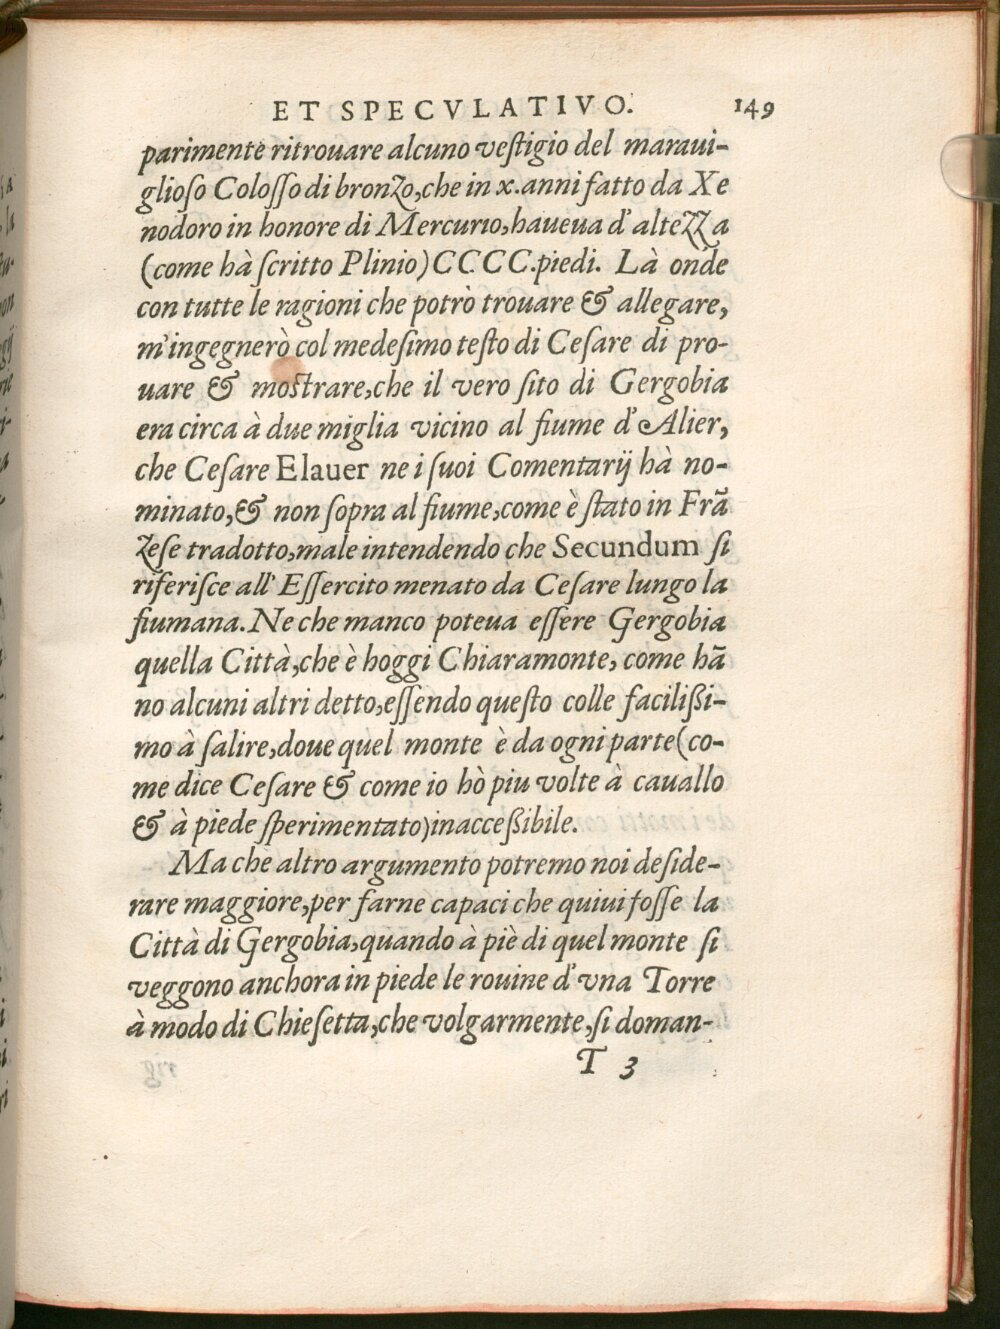 ET SPECVLATIVO. 149
parimente ritrouare alcuno vestigio del maraui-
glioso Colosso di bronzo,che in x.anni fatto da Xe
nodoro in honore di Mercurio,haueua d'altezza
(come hà scritto Plinio)CCCC.piedi. Là onde
con tutte le ragioni che potrò trouare & allegare,
m'ingegnerò col medesimo testo di Cesare di pro-
uare & mostrare,che il vero sito di Gergobia
era circa à due miglia vicino al fiume d'Alier,
che Cesare Elauer ne i suoi Comentarij hà no-
minato,& non sopra al fiume,come è stato in Frã
zese tradotto,male intendendo che Secundum si
riferisce all'Essercito menato da Cesare lungo la
fiumana.Ne che manco poteua essere Gergobia
quella Città,che è hoggi Chiaramonte, come hã
no alcuni altri detto,essendo questo colle facilißi-
mo à salire,doue quel monte è da ogni parte(co-
me dice Cesare & come io hò piu volte à cauallo
& à piede sperimentato)inacceßibile.
Ma che altro argumento potremo noi deside-
rare maggiore,per farne capaci che quiui fosse la
Città di Gergobia,quando à piè di quel monte si
veggono anchora in piede le rouine d'vna Torre
à modo di Chiesetta,che volgarmente,si doman-
T 3